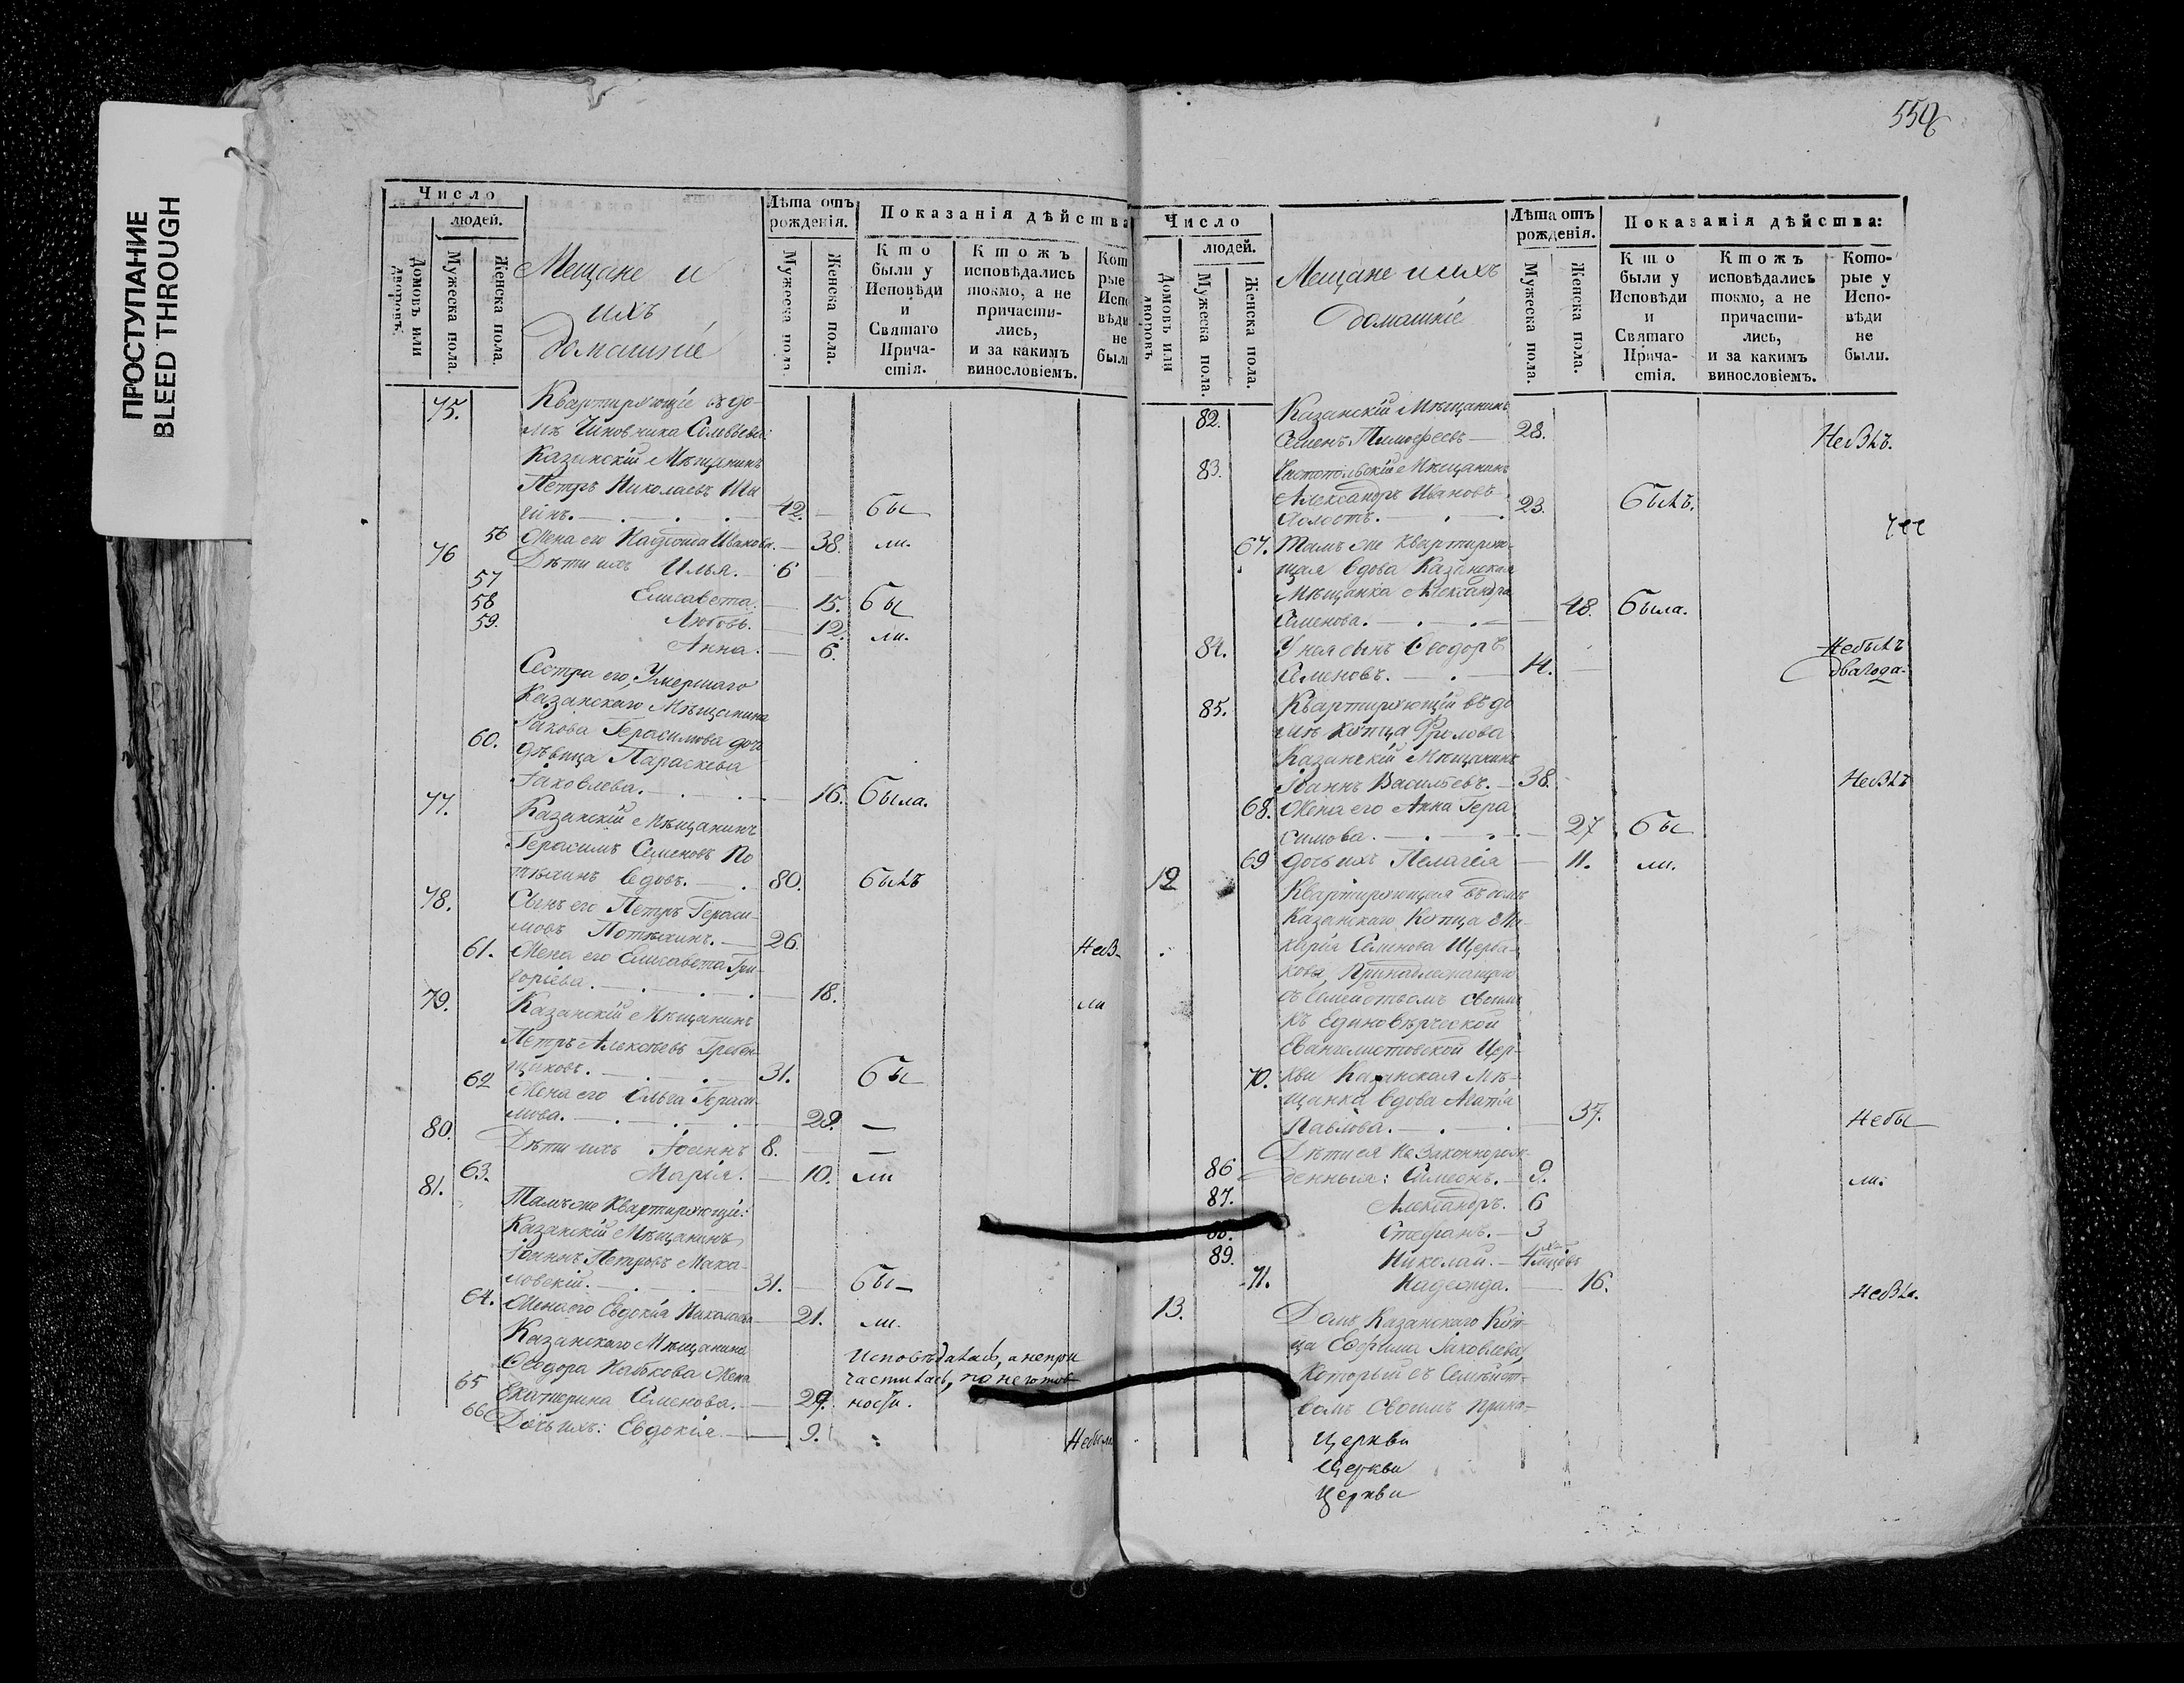 ПРОСТУПАНИЕ
BLEED THROUGH
Число
людей.
Домовъ или дворовъ.
Мужеска пола.
Женска пола.
Мещане и
ихъ
домашніе
Лѣта отъ
рожденія.
Мужеска пола.
Женска пола.
Показанія дѣйства
Кто
были у
Исповѣди
и
Святаго
Прича-
стія.
Ктожъ
исповѣдались
токмо, а не
причасти-
лись,
и за какимъ
винословіемъ.
Кот
рые
Испо
вѣди
не
были
75. Квартирующіе въ до-
мѣ Чиновника Соловьева:
Казанскій Мѣщанинъ
Петръ Николаевъ Ши
42. бы
56 Жена его Иванова. 38. ли.
76 Дѣти ихъ Илья. 6
57 Елисавета. 15. бы
58 Любовь. 12. ли.
59. Анна. 6.
Сестра его, Умершаго
Казанскаго Мѣщанина
Іакова Герасимова дочь
60. дѣвица Параскева
Іаковлева. 16. была.
77. Казанскій Мѣщанинъ
Герасимъ Семеновъ По
тѣхинъ вдовъ. 80. былъ
78. Сынъ его Петръ Гераси-
мовъ Потѣхинъ. 26.
61. Жена его Елисавета Гри- Небы-
горіева. 18. ли
79. Казанскій Мѣщанинъ
Петръ Алексѣевъ Гребен-
щиковъ. 31. бы
62 Жена его Ольга Гераси-
мова. 29. —
80. Дѣти ихъ Іоаннъ 8. —
63. Марія. 10. ли
81. Тамъже Квартирующій:
Казанскій Мѣщанинъ
Іоаннъ Петровъ Мака-
ловскій. 31. бы-
64. Жена его Евдокія Николаева 21. ли.
Казанскаго Мѣщанина
Ѳеодора Жена
Исповѣдалась, а непри
частилась, по неготов
65 Екатерина Семенова. 29. ности.
66 Дочь ихъ: Евдокія. 9. Небыла
559
Число
людей.
Домовъ или дворовъ.
Мужеска пола.
Женска пола.
Мещане и ихъ
домашніе
Лѣта отъ
рожденія.
Мужеска пола.
Женска пола.
Показанія дѣйства:
Кто
были у
Исповѣди
и
Святаго
Прича-
стія.
Ктожъ
исповѣдались
токмо, а не
причасти-
лись,
и за какимъ
винословіемъ.
Кото-
рые у
Испо-
вѣди
не
были.
82. Казанскій Мѣщанинъ
Семенъ Тимофеевъ 28. Небылъ.
83. Чистопольскій Мѣщанинъ
Александръ Ивановъ 23. былъ.
67. Тамъ же квартирую-
щая вдова Казанская
Мѣщанка Александра
Семенова. 48. была.
84. У нея сынъ Ѳеодоръ Небылъ
Семеновъ. 14. два года.
85. Квартирующій въ до
мѣ купца Фролова
Казанскій Мѣщанинъ
Іоаннъ Васильевъ. 38. Небылъ
68. Жена его Анна Гера
симова. 27 бы
69 дочь ихъ Пелагія 11. ли.
12 Квартирующая въ домѣ
Казанскаго Купца Ма-
карія Семенова Щерба-
кова, Принадлежащаго
съ Семействомъ своимъ
къ Единовѣрческой
Евангелистовской Цер-
70. кви Казанская Мѣ-
щанка вдова Агапія
Павлова. 37. Небы
Дѣти ея не законнорож-
86 денныя: Симеонъ. 9. ли.
87. Александръ. 6
88. Стефанъ. 3
89. Николай. 4
71. Надежда. 16. Небыла.
13. Домъ Казанскаго Куп-
ца Ефрема Іаковлева,
Который съ Семѣйст-
вомъ Своимъ прина-
Церкви
Церкви
Церкви